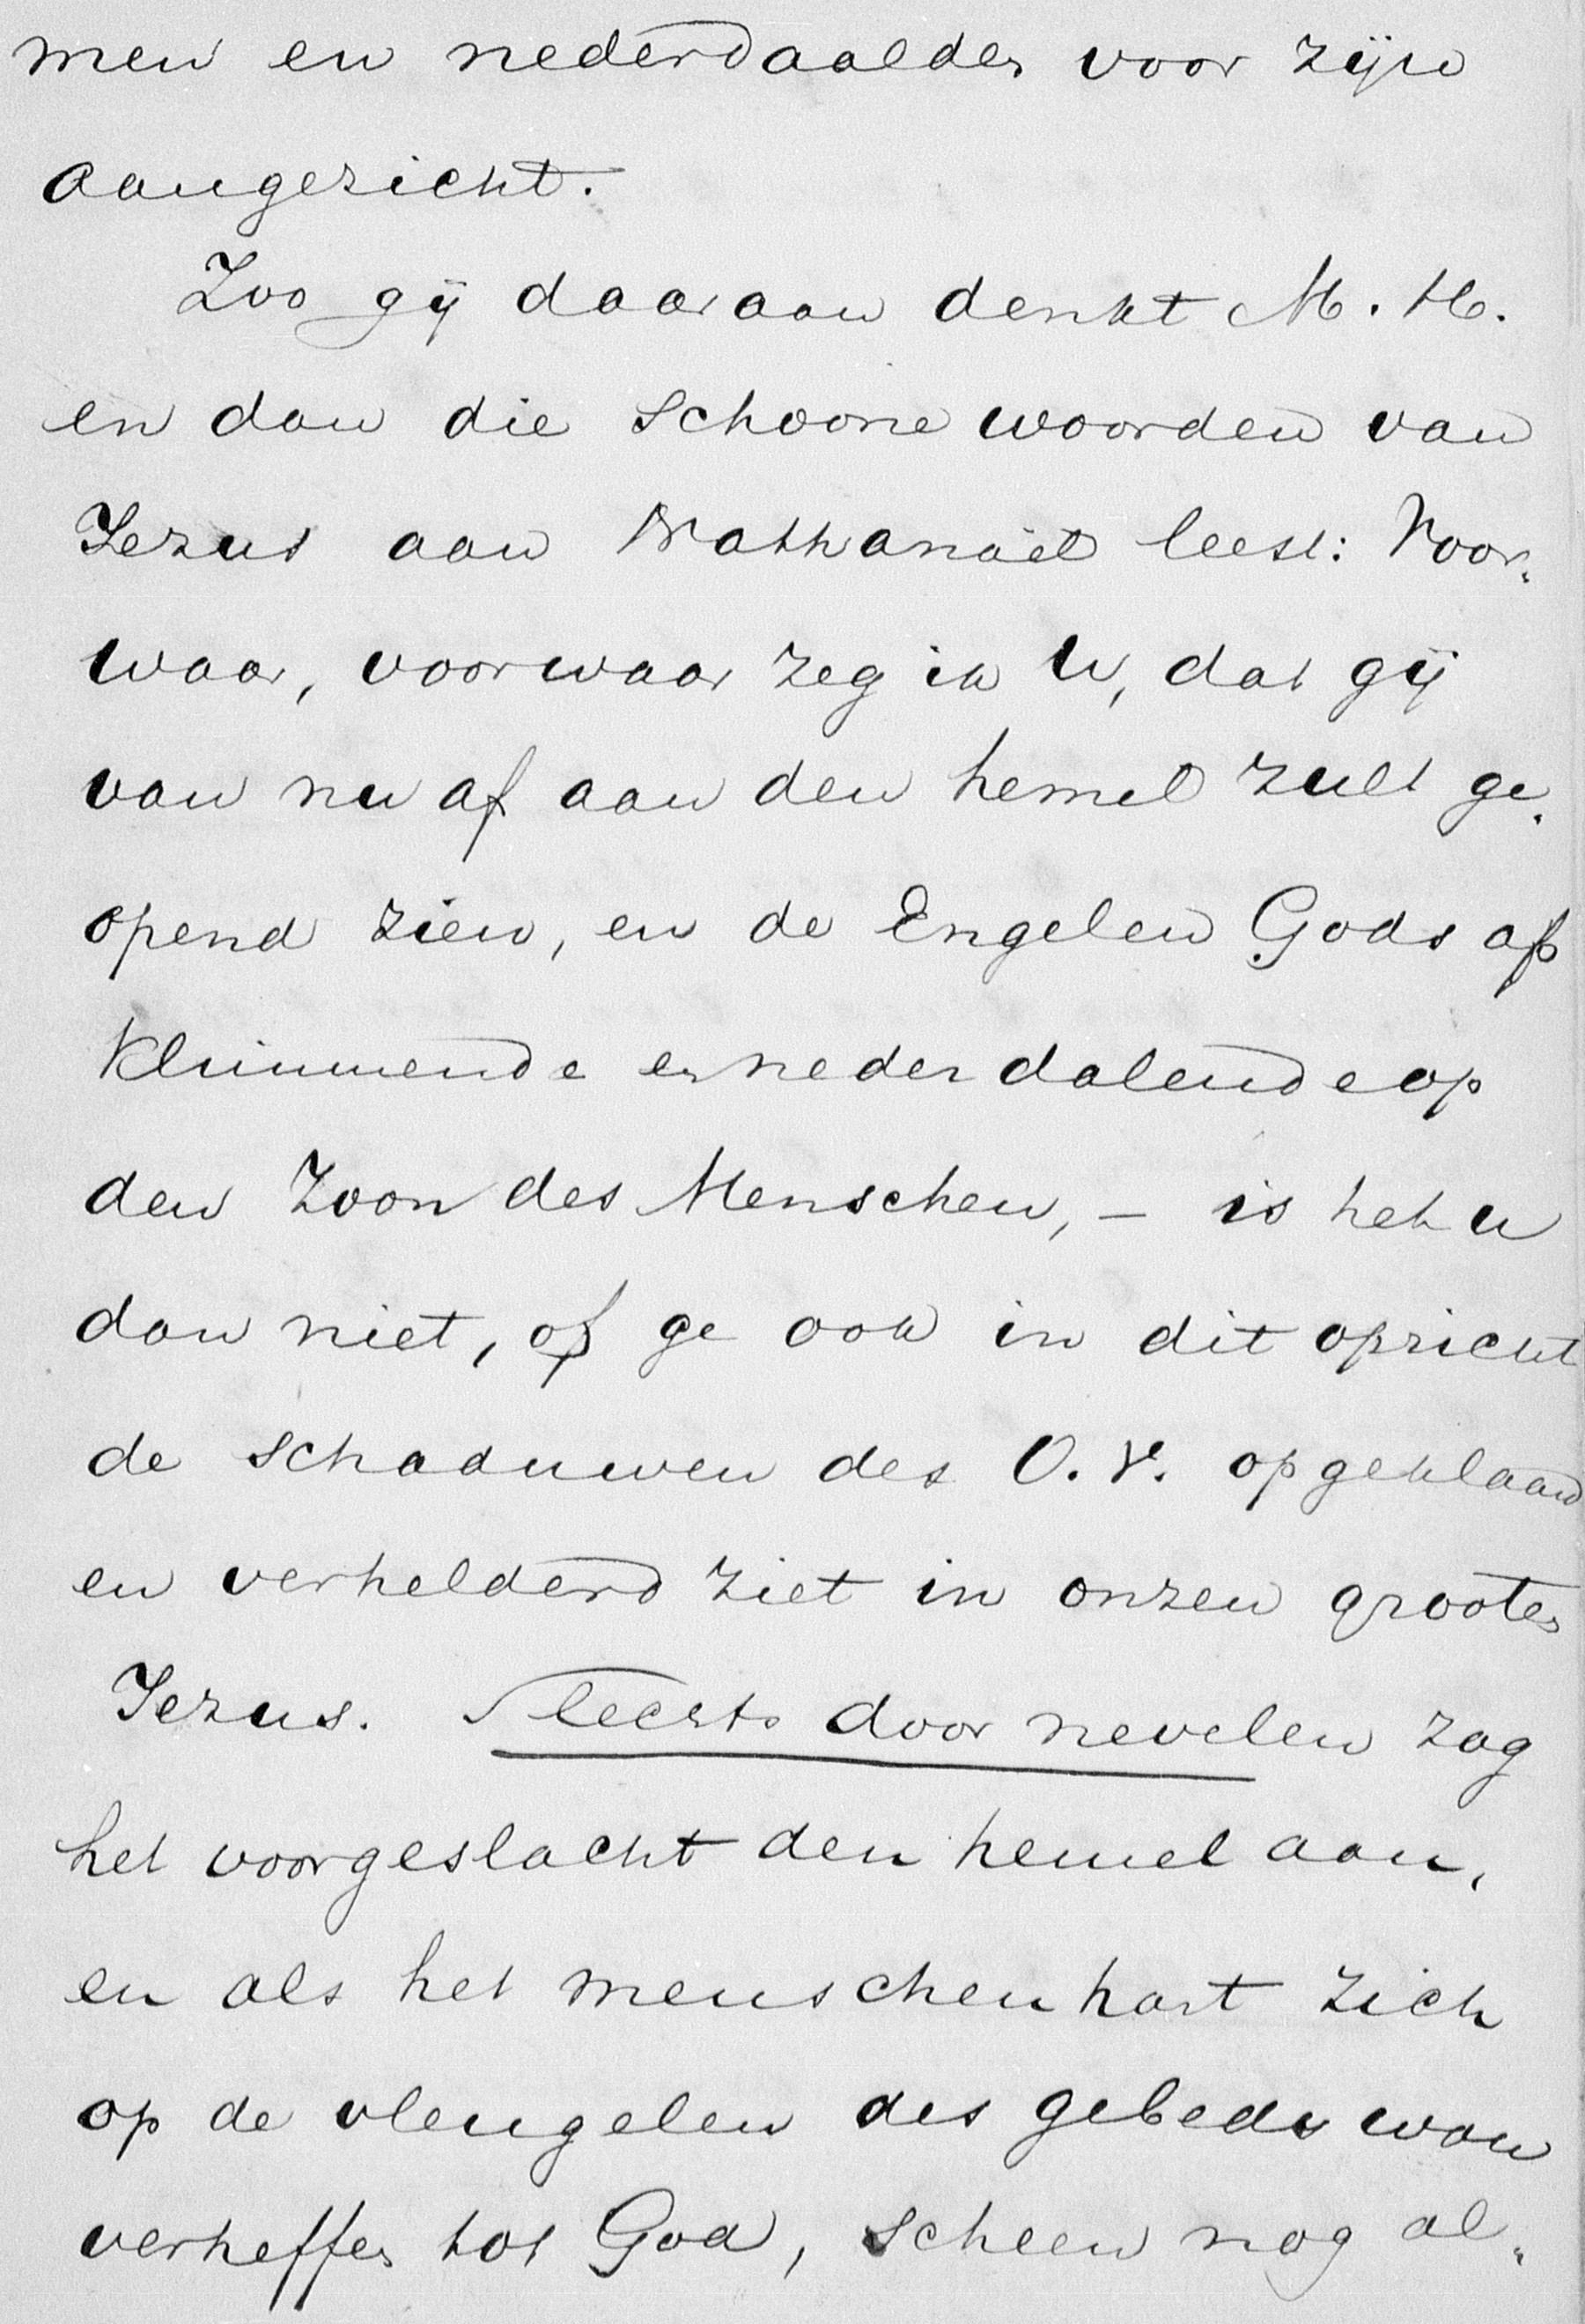 men en nederdaalden voor zijn
aangezicht.
Zoo gij daaraan denkt M. H.
en dan die schoone woorden van
Jezus aan Nathanaël leest: Voor-
waar, voorwaar zeg ik U, dat gij
van nu af aan den hemel zult ge-
opend zien, en de Engelen Gods op
klimmende en neder dalende op
den Zoon des Menschen, – is het u
dan niet, of ge ook in dit opzicht
de schaduwen des O. V. opgeklaard
en verhelderd ziet in onzen grooten
Jezus. Slechts door nevelen zag
het voorgeslacht den hemel aan,
en als het menschenhart zich
op de vleugelen des gebeds wou
verheffen tot God, scheen nog al-